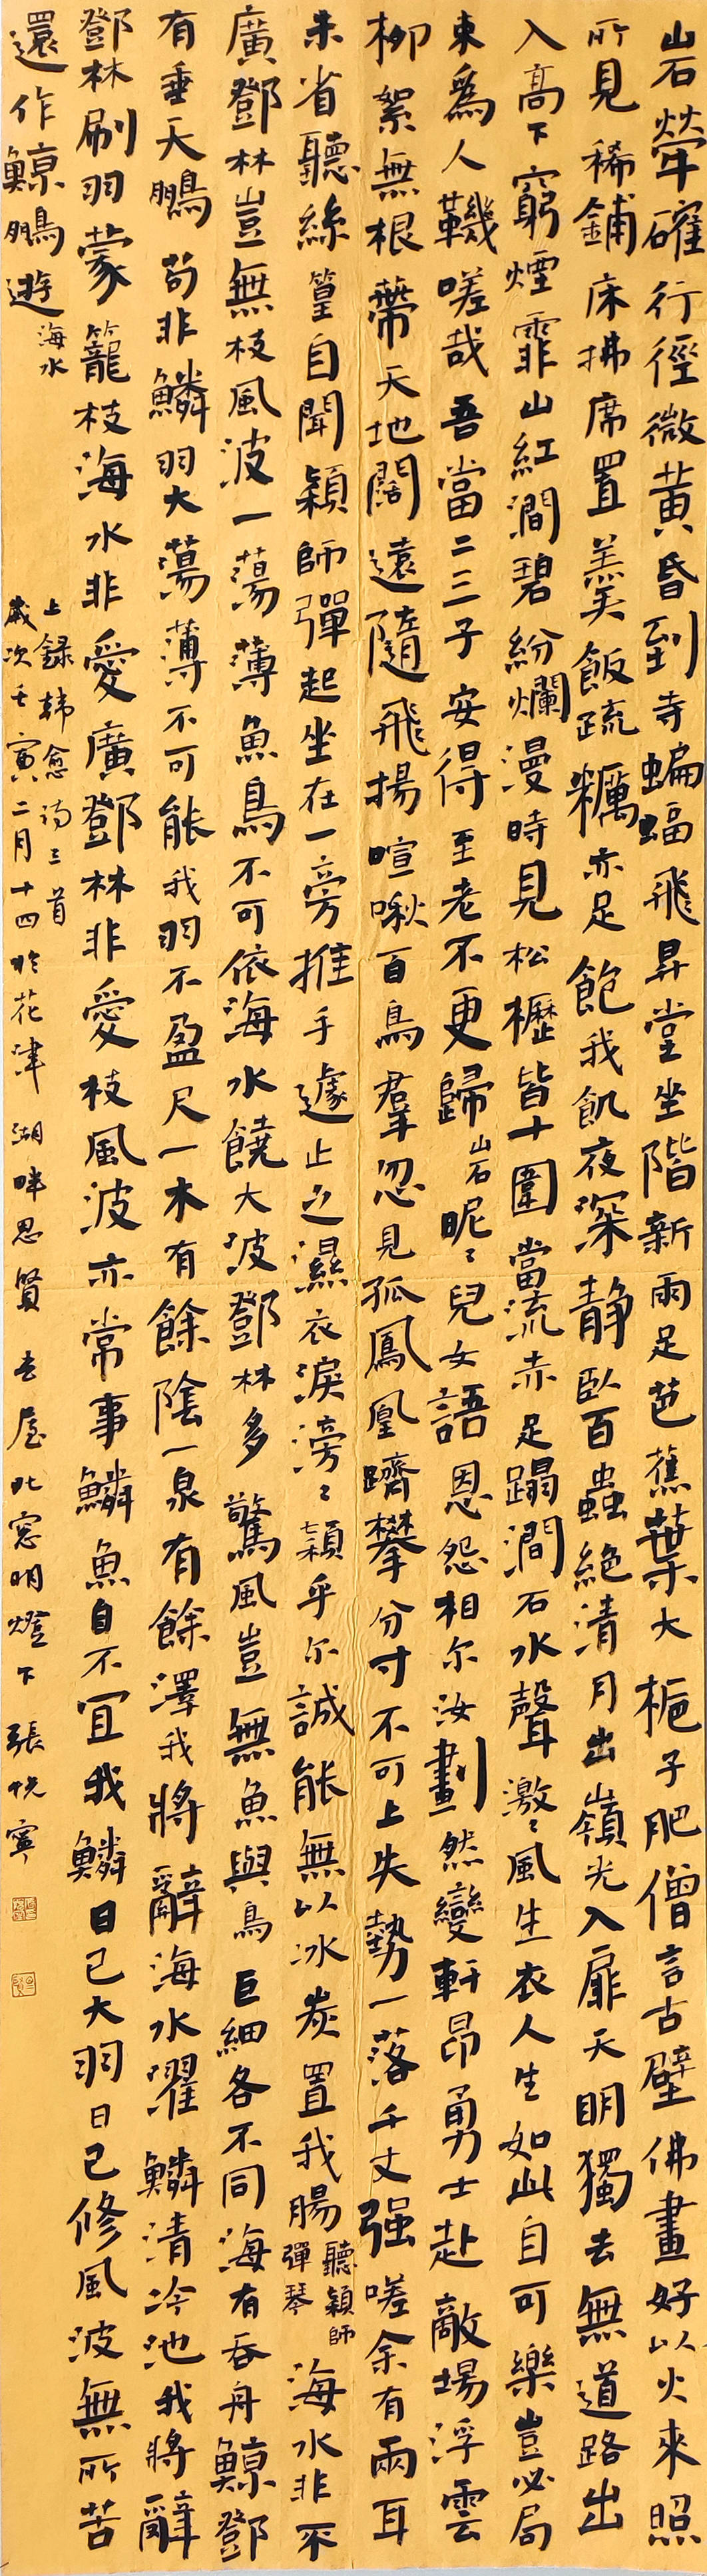 山石犖確行徑微黃昏到寺蝙蝠飛昇堂坐階新雨足芭蕉葉大梔子肥僧言古壁佛畫好以火來照
所見稀鋪床拂席置羹飯疏糲亦足飽我飢夜深靜臥百蟲絕清月出嶺光入扉天明獨去無道路出
入高下窮煙霏山紅澗碧紛爛漫時見松櫪皆十圍當流赤足蹋澗石水聲激〻風生衣人生如此自可樂豈必局
束爲人鞿嗟哉吾當二三子安得至老不更歸 山石 昵〻兒女語恩怨相尔汝劃然變軒昂勇士赴敵場浮雲
柳絮無根蒂天地闊遠隨飛揚喧啾百鳥羣忽見孤鳳凰躋攀分寸不可上失勢一落千丈强嗟余有兩耳
未省聽絲篁自聞穎師彈起坐在一旁推手遽止之濕衣淚滂〻穎乎尔誠能無以冰炭置我腸 聽穎師彈琴 海水非不
廣鄧林豈無枝風波一蕩薄魚鳥不可依海水饒大波鄧林多驚風豈無魚與鳥巨細各不同海有吞舟鯨鄧
有垂天鵬苟非鱗羽大蕩薄不可能我羽不盈尺一木有餘陰一泉有餘澤我將辭海水濯鱗清冷池我將辭
鄧林刷羽蒙籠枝海水非愛廣鄧林非愛枝風波亦常事鱗魚自不宜我鱗日已大羽日已修風波無所苦
還作鯨鵬遊 海水
上錄韓愈詩三首
歲次壬寅二月十四於花津湖畔思賢書屋北窗明燈下張悅寧